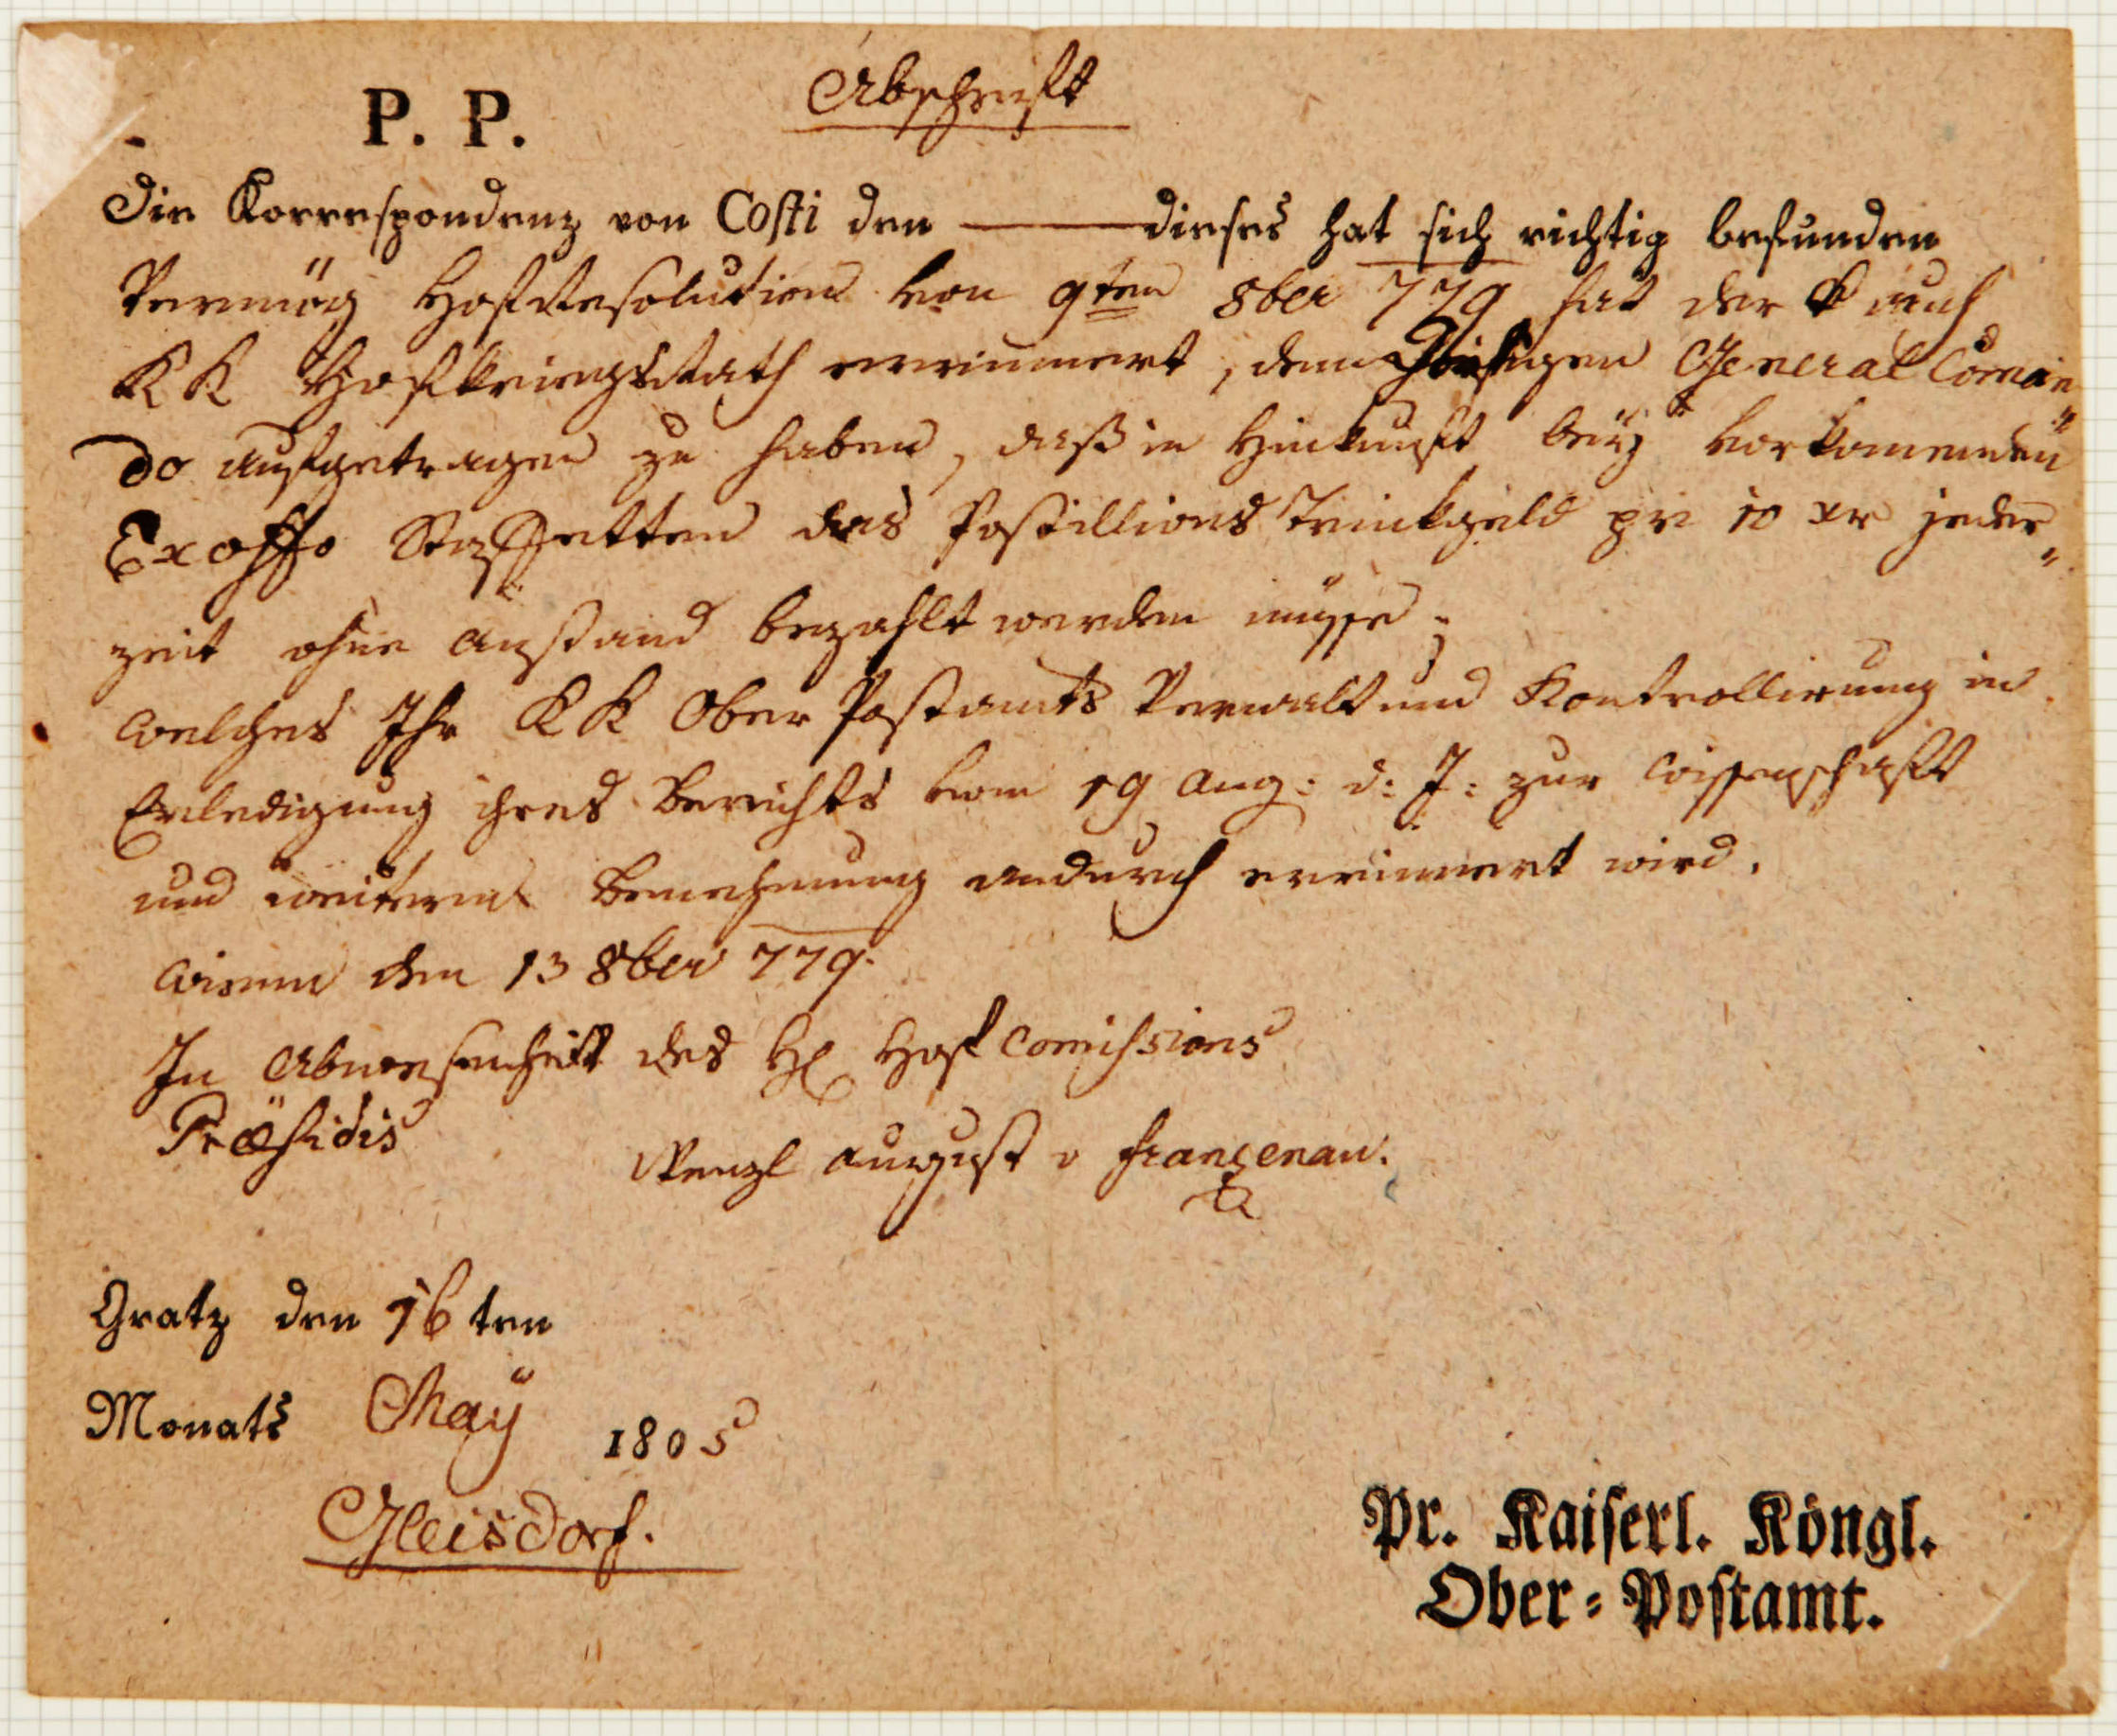 Abschrift
P. P.
Die Korrespondenz von Costi den dieses hat sich richtig befunden
Vermög HofResolution von 9ten 8ber 779 hat der auch
KK HofkriegsRath errinnert, dem hiesigen General Coman
do aufgetragen zu haben, daß in Hinkunft beÿ vorkomenden
Exoffo Staffetten das Postillions Trinkgeld pr 10 xr jeder
zeit ohne Anstand bezahlt werden müsse;
Welches Ihr KK Ober Postamts Verwalt und Kontrollirung in
Erledigung ihres Berichts vom 19 Aug: d: J: zur Wissenschaft
und Benehmung andurch errinnert wird.
Wienn den 13 8ber 779.
In Abwesenheit des H Hof Comissions
Præsidis
Wenzl August v Franzenau.
Gratz den 16 ten
Monats Maÿ 1805
Gleisdorf.
Pr. Kaiserl. Köngl.
Ober-Postamt.